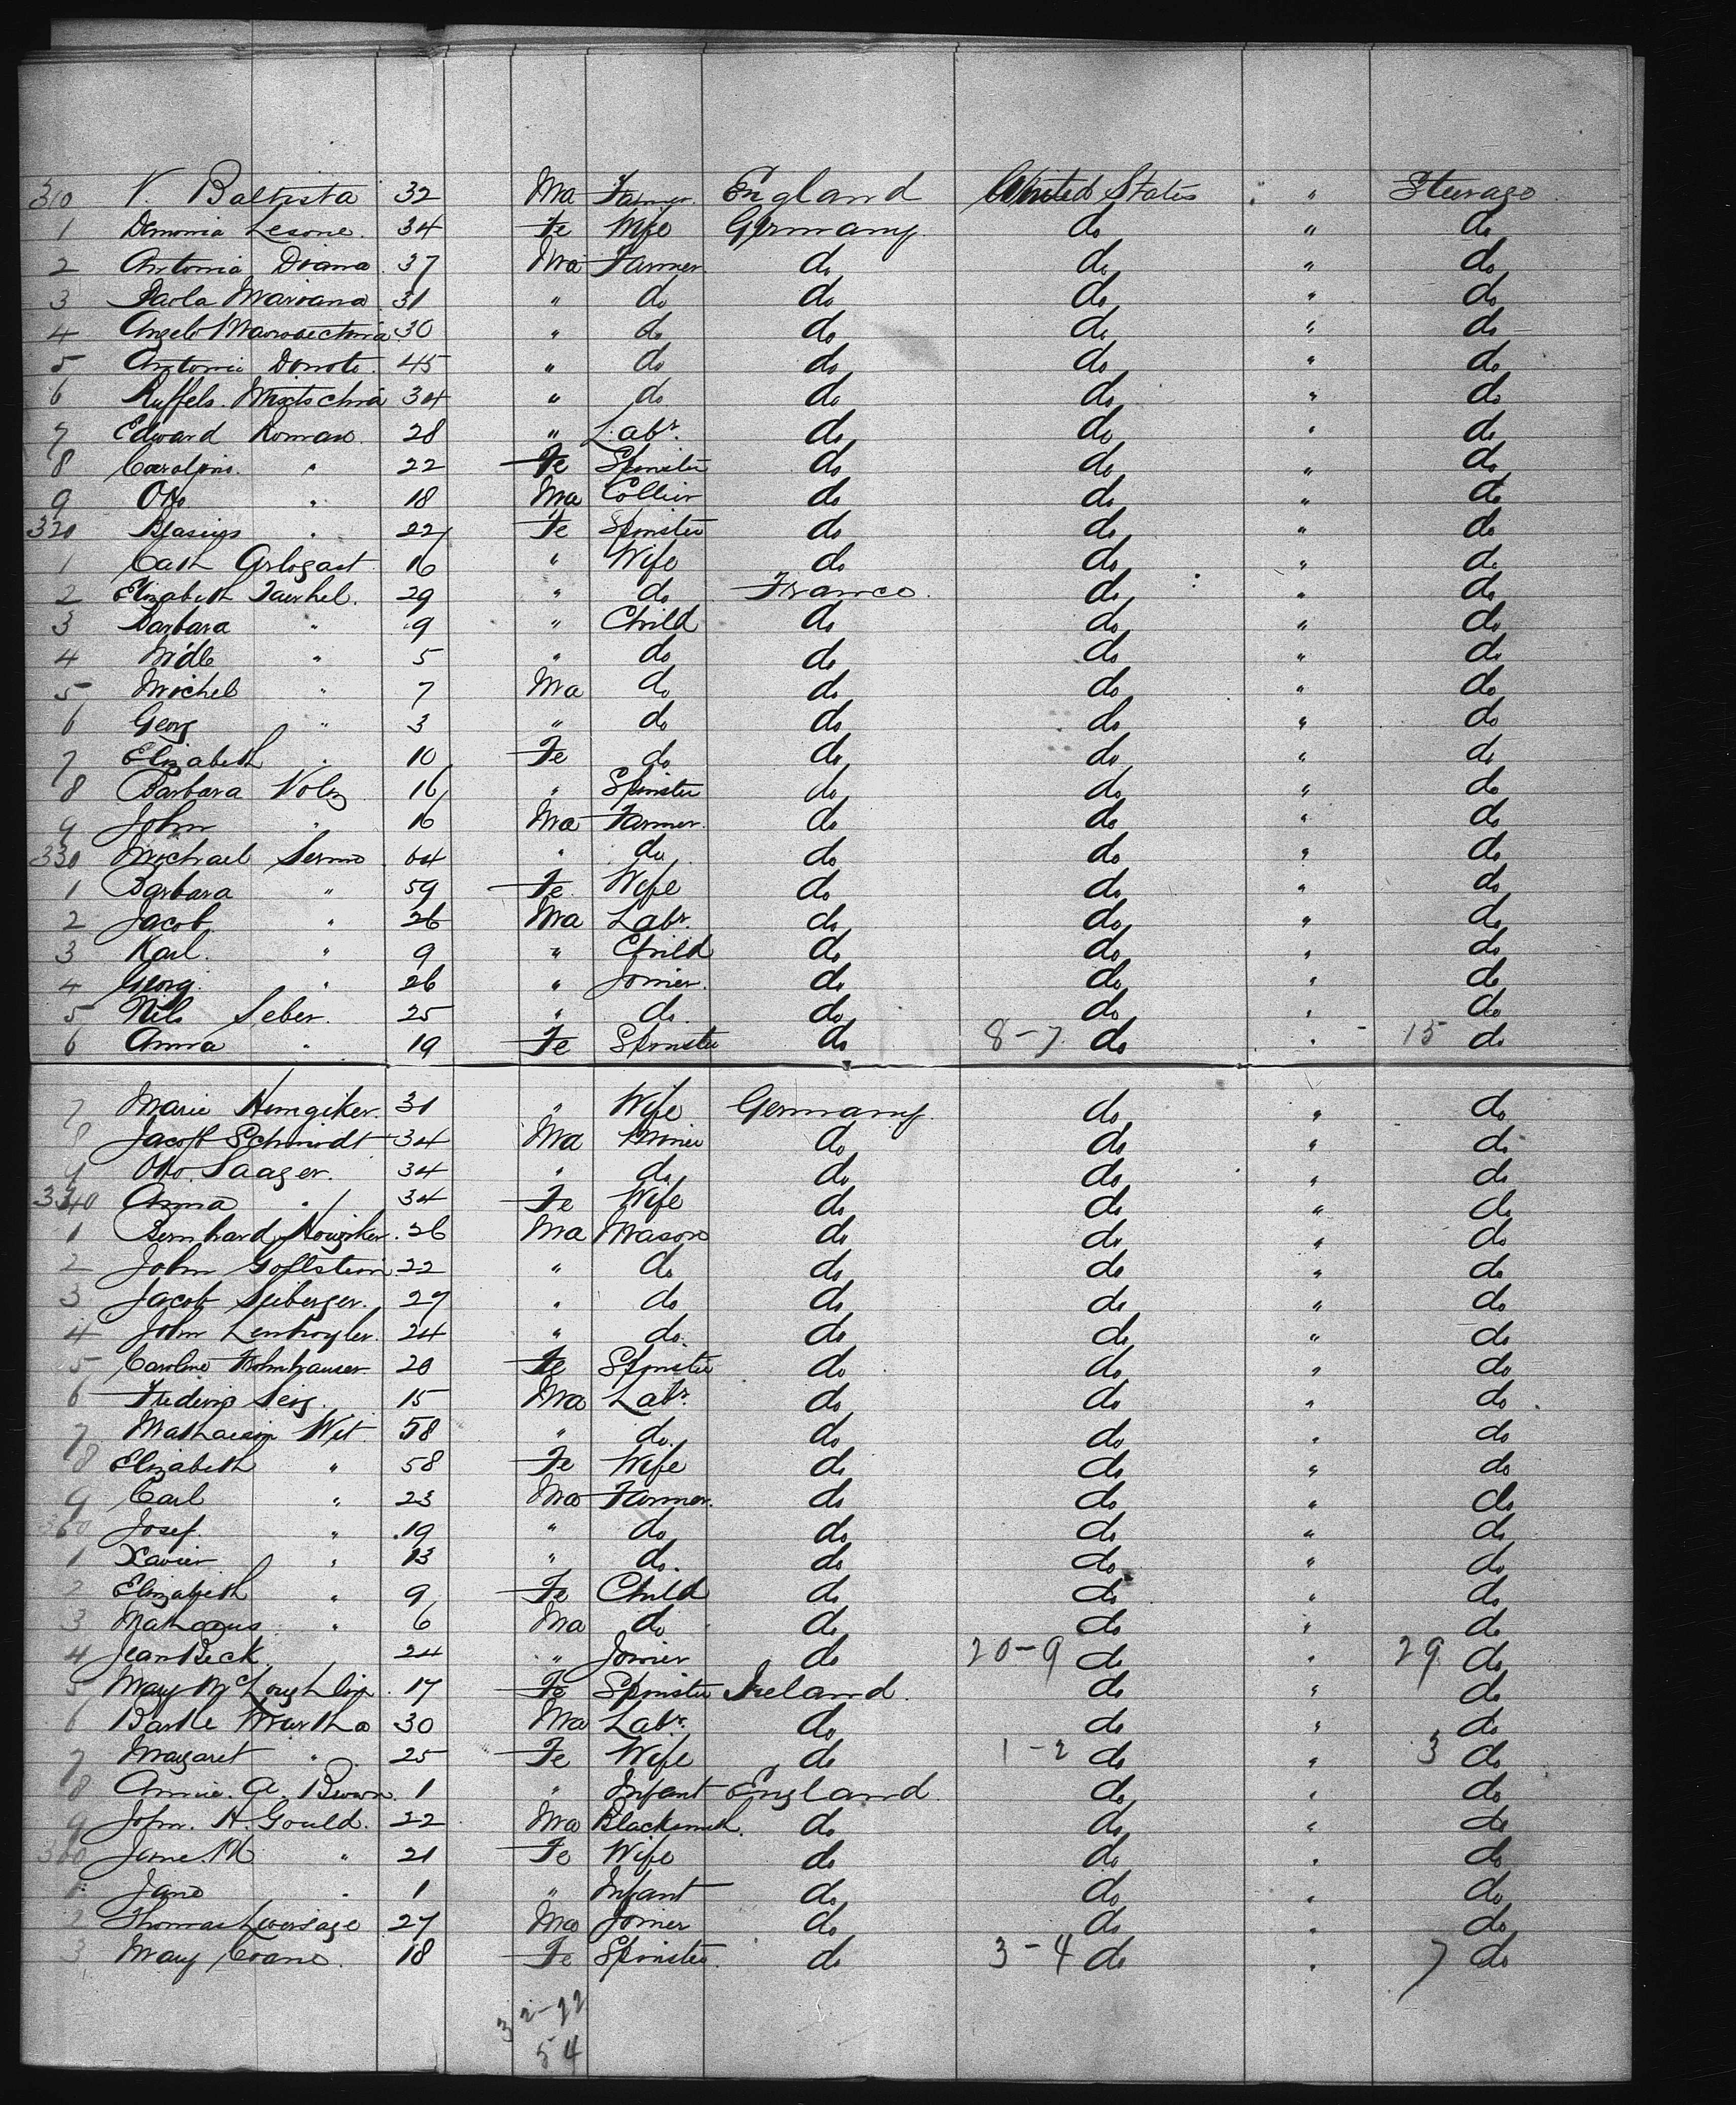 310 V. Baltista 32 Ma Farmer England United States " Steerage
1 Demonia Lesone. 34 Fe Wife Germany do " do
2 Antonia Diana 37 Ma Farmer do do " do
3 Paola Mariana 31 " do do do " do
4 Angelo 30 " do do do " do
5 Antonio Donoto 45 " do do do " do
6 Ruffels. 34 " do do do " do
7 Edward Roman 28 " Labr. do do " do
8 " 22 Fe Spinster do do " do
9 Otto " 18 Ma Collier do do " do
320 Blasius " 22 Fe Spinster do do " do
1 Cath Arbogast 16 " Wife do do " do
2 Elizabeth 29 " do France do " do
3 Barbara " 9 " Child do do " do
4 " 5 " do do do " do
5 Michel " 7 Ma do do do " do
6 Georg " 3 " do do do " do
7 Elizabeth " 10 Fe do do do " do
8 Barbara Volz 16 " Spinster do do " do
9 John " 16 Ma Farmer do do " do
330 Michael 64 " do do do " do
1 Barbara " 59 Fe Wife do do " do
2 Jacob " 26 Ma Labr. do do " do
3 Karl " 9 " Child do do " do
4 Georg " 26 " Joiner do do " do
5 Nils Seber. 25 " do do do " do
6 Anna " 19 Fe Spinster do 8-7 do " 15 do
7 Marie 31 " Wife Germany do " do
8 Jacob Schmidt 34 Ma Miner do do " do
9 Otto Saager. 34 " do do do " do
340 Anna " 34 Fe Wife do do " do
1 Bernhard 26 Ma Mason do do " do
2 John Goflstein 22 " do do do " do
3 Jacob Seiberger. 27 " do do do " do
4 John 24 " do do do " do
5 Caroline 20 Fe Spinster do do " do
6 15 Ma Labr. do do " do
7 Wit 58 " do do do " do
8 Elizabeth " 58 Fe Wife do do " do
9 Carl " 23 Ma Farmer. do do " do
Josef " 19 " do do do " do
1 Xavier " 13 " do do do " do
2 Elizabeth " 9 Fe Child do do " do
3 " 6 Ma do do do " do
4 Jean Beck 24 " Joiner do 20-9 do " 29 do
5 Mary McLoughlin 17 Fe Spinster Ireland do " do
6 Bartle Murtha 30 Ma Labr. do do " do
7 Margaret " 25 Fe Wife do 1-2 do " 3 do
8 Annie. A. Brown 1 " Infant England do " do
9 John. H. Gould. 22 Ma Blacksmith do do " do
360 Jane. M " 21 Fe Wife do do " do
1 Jane " 1 " Infant do do " do
2 Thomas Leversage 27 Ma Joiner do do " do
3 Mary Evans 18 Fe Spinster do 3-4 do " 7 do
32-22
54